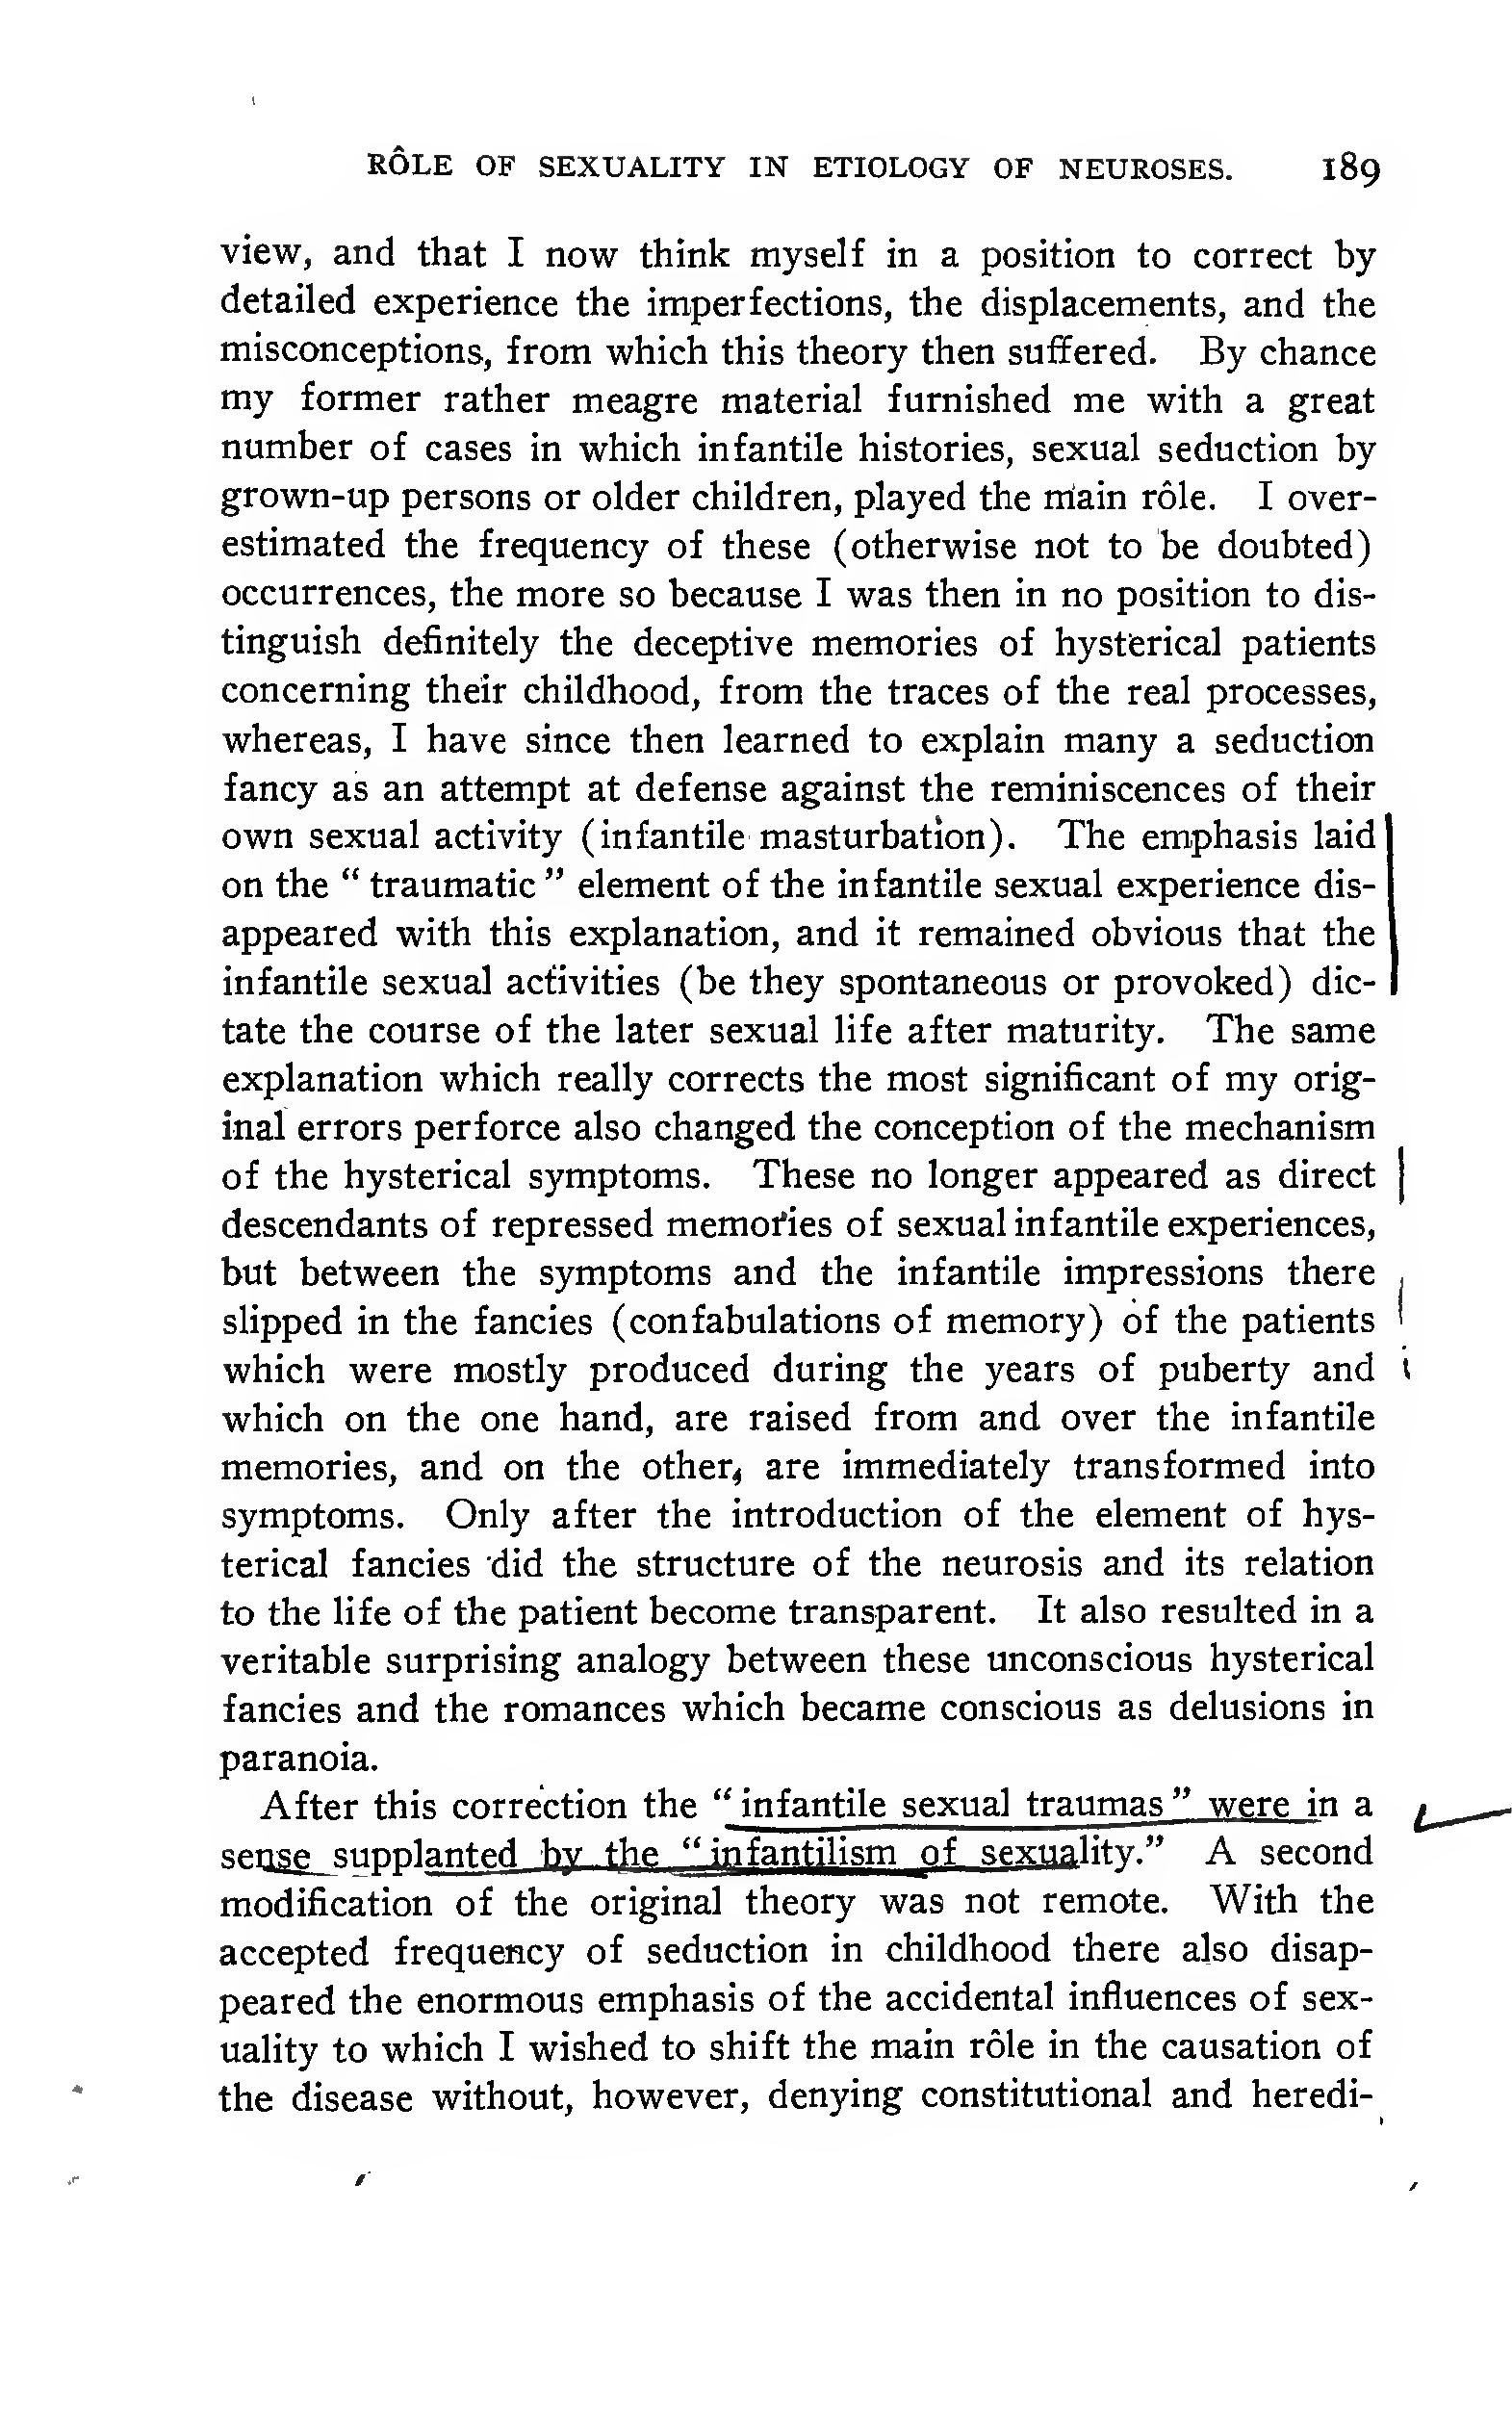 RÔLE OF SEXUALITY IN ETIOLOGY OF NEUROSES. 189
view, and that I now think myself in a position to correct by
detailed experience the imperfections, the displacements, and the
misconceptions, from which this theory then suffered. By chance
my former rather meagre material furnished me with a great
number of cases in which infantile histories, sexual seduction by
grown-up persons or older children, played the main rôle. I over-
estimated the frequency of these (otherwise not to be doubted)
occurrences, the more so because I was then in no position to dis-
tinguish definitely the deceptive memories of hysterical patients
concerning their childhood, from the traces of the real processes,
whereas, I have since then learned to explain many a seduction
fancy as an attempt at defense against the reminiscences of their
own sexual activity (infantile masturbation). The emphasis laid
on the “ traumatic ” element of the infantile sexual experience dis-
appeared with this explanation, and it remained obvious that the
infantile sexual activities (be they spontaneous or provoked) dic-
tate the course of the later sexual life after maturity. The same
explanation which really corrects the most significant of my orig-
inal errors perforce also changed the conception of the mechanism
of the hysterical symptoms. These no longer appeared as direct
descendants of repressed memories of sexual infantile experiences,
but between the symptoms and the infantile impressions there
slipped in the fancies (confabulations of memory) of the patients
which were mostly produced during the years of puberty and
which on the one hand, are raised from and over the infantile
memories, and on the other, are immediately transformed into
symptoms. Only after the introduction of the element of hys-
terical fancies did the structure of the neurosis and its relation
to the life of the patient become transparent. It also resulted in a
veritable surprising analogy between these unconscious hysterical
fancies and the romances which became conscious as delusions in
paranoia.
After this correction the “ infantile sexual traumas ” were in a
sense supplanted by the “ infantilism of sexuality.” A second
modification of the original theory was not remote. With the
accepted frequency of seduction in childhood there also disap-
peared the enormous emphasis of the accidental influences of sex-
uality to which I wished to shift the main rôle in the causation of
the disease without, however, denying constitutional and heredi-